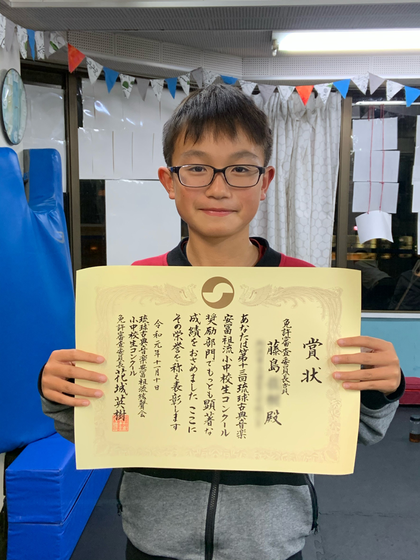 賞状
免許審査委員長賞
藤島 殿
あなたは第十三回琉球古典音楽
安冨祖流小中校生コンクール
奨励部門でもっとも顕著な
成績をおさめました ここに
その栄誉を称え表彰します
令和元年十一月十日
琉球古典音楽安冨祖流絃聲会
小中校生コンクール
免許審査委員長 花城英樹